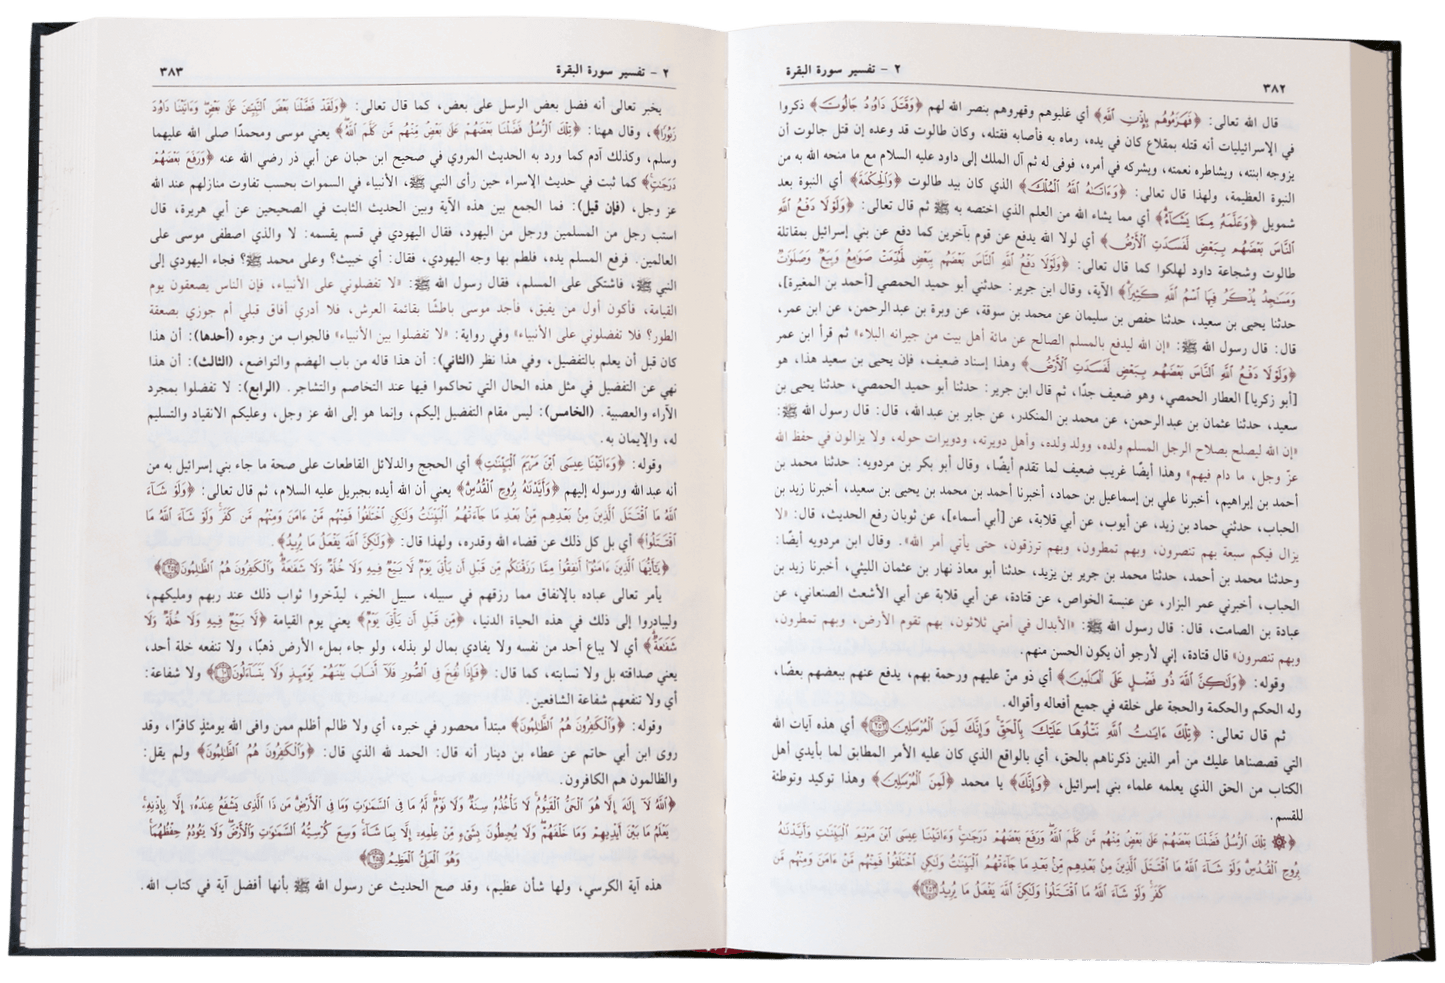 ٢ - تفسير سورة البقرة ٣٨٢
قال الله تعالى: ﴿فَهَزَمُوهُم بِإِذْنِ ٱللَّهِ﴾ أي غلبوهم وقهروهم بنصر الله لهم ﴿وَقَتَلَ دَاوُۥدُ جَالُوتَ﴾ ذكروا
في الإسرائيليات أنه قتله بمقلاع كان في يده، رماه به فأصابه فقتله، وكان طالوت قد وعده إن قتل جالوت أن
يزوجه ابنته، ويشاطره نعمته، ويشركه في أمره، فوفى له ثم آل الملك إلى داود عليه السلام مع ما منحه الله به من
النبوة العظيمة، ولهذا قال تعالى: ﴿وَءَاتَىٰهُ ٱللَّهُ ٱلْمُلْكَ﴾ الذي كان بيد طالوت ﴿وَٱلْحِكْمَةَ﴾ أي النبوة بعد
شمويل ﴿وَعَلَّمَهُۥ مِمَّا يَشَآءُ﴾ أي مما يشاء الله من العلم الذي اختصه به ﷺ ثم قال تعالى: ﴿وَلَوْلَا دَفْعُ ٱللَّهِ
ٱلنَّاسَ بَعْضَهُم بِبَعْضٍ لَّفَسَدَتِ ٱلْأَرْضُ﴾ أي لولا الله يدفع عن قوم بآخرين كما دفع عن بني إسرائيل بمقاتلة
طالوت وشجاعة داود لهلكوا كما قال تعالى: ﴿وَلَوْلَا دَفْعُ ٱللَّهِ ٱلنَّاسَ بَعْضَهُم بِبَعْضٍ لَّهُدِّمَتْ صَوَٰمِعُ وَبِيَعٌ وَصَلَوَٰتٌ
وَمَسَٰجِدُ يُذْكَرُ فِيهَا ٱسْمُ ٱللَّهِ كَثِيرًا﴾ الآية، وقال ابن جرير: حدثني أبو حميد الحمصي [أحمد بن المغيرة]،
حدثنا يحيى بن سعيد، حدثنا حفص بن سليمان عن محمد بن سوقة، عن وبرة بن عبد الرحمن، عن ابن عمر،
قال: قال رسول الله ﷺ: «إن الله ليدفع بالمسلم الصالح عن مائة أهل بيت من جيرانه البلاء» ثم قرأ ابن عمر
﴿وَلَوْلَا دَفْعُ ٱللَّهِ ٱلنَّاسَ بَعْضَهُم بِبَعْضٍ لَّفَسَدَتِ ٱلْأَرْضُ﴾ وهذا إسناد ضعيف، فإن يحيى بن سعيد هذا، هو
[أبو زكريا] العطار الحمصي، وهو ضعيف جدًا، ثم قال ابن جرير: حدثنا أبو حميد الحمصي، حدثنا يحيى بن
سعيد، حدثنا عثمان بن عبد الرحمن، عن محمد بن المنكدر، عن جابر بن عبدالله، قال: قال رسول الله ﷺ:
«إن الله ليصلح بصلاح الرجل المسلم ولده، وولد ولده، وأهل دويرته، ودويرات حوله، ولا يزالون في حفظ الله
عزّ وجل، ما دام فيهم» وهذا أيضًا غريب ضعيف لما تقدم أيضًا، وقال أبو بكر بن مردويه: حدثنا محمد بن
أحمد بن إبراهيم، أخبرنا علي بن إسماعيل بن حماد، أخبرنا أحمد بن محمد بن يحيى بن سعيد، أخبرنا زيد بن
الحباب، حدثني حماد بن زيد، عن أيوب، عن أبي قلابة، عن [أبي أسماء]، عن ثوبان رفع الحديث، قال: «لا
يزال فيكم سبعة بهم تنصرون، وبهم تمطرون، وبهم ترزقون، حتى يأتي أمر الله». وقال ابن مردويه أيضًا:
وحدثنا محمد بن أحمد، حدثنا محمد بن جرير بن يزيد، حدثنا أبو معاذ نهار بن عثمان الليثي، أخبرنا زيد بن
الحباب، أخبرني عمر البزار، عن عنبسة الخواص، عن قتادة، عن أبي قلابة عن أبي الأشعث الصنعاني، عن
عبادة بن الصامت، قال: قال رسول الله ﷺ: «الأبدال في أمتي ثلاثون، بهم تقوم الأرض، وبهم تمطرون،
وبهم تنصرون» قال قتادة، إني لأرجو أن يكون الحسن منهم.
وقوله: ﴿وَلَٰكِنَّ ٱللَّهَ ذُو فَضْلٍ عَلَى ٱلْعَٰلَمِينَ﴾ أي ذو منّ عليهم ورحمة بهم، يدفع عنهم ببعضهم بعضًا،
وله الحكم والحكمة والحجة على خلقه في جميع أفعاله وأقواله.
ثم قال تعالى: ﴿تِلْكَ ءَايَٰتُ ٱللَّهِ نَتْلُوهَا عَلَيْكَ بِٱلْحَقِّ وَإِنَّكَ لَمِنَ ٱلْمُرْسَلِينَ ٢٥٢﴾ أي هذه آيات الله
التي قصصناها عليك من أمر الذين ذكرناهم بالحق، أي بالواقع الذي كان عليه الأمر المطابق لما بأيدي أهل
الكتاب من الحق الذي يعلمه علماء بني إسرائيل، ﴿وَإِنَّكَ﴾ يا محمد ﴿لَمِنَ ٱلْمُرْسَلِينَ﴾ وهذا توكيد وتوطئة
للقسم.
﴿۞ تِلْكَ ٱلرُّسُلُ فَضَّلْنَا بَعْضَهُمْ عَلَىٰ بَعْضٍ مِّنْهُم مَّن كَلَّمَ ٱللَّهُ وَرَفَعَ بَعْضَهُمْ دَرَجَٰتٍ وَءَاتَيْنَا عِيسَى ٱبْنَ مَرْيَمَ ٱلْبَيِّنَٰتِ وَأَيَّدْنَٰهُ
بِرُوحِ ٱلْقُدُسِ وَلَوْ شَآءَ ٱللَّهُ مَا ٱقْتَتَلَ ٱلَّذِينَ مِنۢ بَعْدِهِم مِّنۢ بَعْدِ مَا جَآءَتْهُمُ ٱلْبَيِّنَٰتُ وَلَٰكِنِ ٱخْتَلَفُوا۟ فَمِنْهُم مَّنْ ءَامَنَ وَمِنْهُم مَّن
كَفَرَ وَلَوْ شَآءَ ٱللَّهُ مَا ٱقْتَتَلُوا۟ وَلَٰكِنَّ ٱللَّهَ يَفْعَلُ مَا يُرِيدُ ٢٥٣﴾
٢ - تفسير سورة البقرة ٣٨٣
يخبر تعالى أنه فضل بعض الرسل على بعض، كما قال تعالى: ﴿وَلَقَدْ فَضَّلْنَا بَعْضَ ٱلنَّبِيِّـۧنَ عَلَىٰ بَعْضٍ وَءَاتَيْنَا دَاوُۥدَ
زَبُورًا﴾، وقال ههنا: ﴿تِلْكَ ٱلرُّسُلُ فَضَّلْنَا بَعْضَهُمْ عَلَىٰ بَعْضٍ مِّنْهُم مَّن كَلَّمَ ٱللَّهُ﴾ يعني موسى ومحمدًا صلى الله عليهما
وسلم، وكذلك آدم كما ورد به الحديث المروي في صحيح ابن حبان عن أبي ذر رضي الله عنه ﴿وَرَفَعَ بَعْضَهُمْ
دَرَجَٰتٍ﴾ كما ثبت في حديث الإسراء حين رأى النبي ﷺ، الأنبياء في السموات بحسب تفاوت منازلهم عند الله
عز وجل، (فإن قيل): فما الجمع بين هذه الآية وبين الحديث الثابت في الصحيحين عن أبي هريرة، قال
استب رجل من المسلمين ورجل من اليهود، فقال اليهودي في قسم يقسمه: لا والذي اصطفى موسى على
العالمين. فرفع المسلم يده، فلطم بها وجه اليهودي، فقال: أي خبيث؟ وعلى محمد ﷺ؟ فجاء اليهودي إلى
النبي ﷺ، فاشتكى على المسلم، فقال رسول الله ﷺ: «لا تفضلوني على الأنبياء، فإن الناس يصعقون يوم
القيامة، فأكون أول من يفيق، فأجد موسى باطشًا بقائمة العرش، فلا أدري أفاق قبلي أم جوزي بصعقة
الطور؟ فلا تفضلوني على الأنبياء» وفي رواية: «لا تفضلوا بين الأنبياء» فالجواب من وجوه (أحدها): أن هذا
كان قبل أن يعلم بالتفضيل، وفي هذا نظر (الثاني): أن هذا قاله من باب الهضم والتواضع، (الثالث): أن هذا
نهي عن التفضيل في مثل هذه الحال التي تحاكموا فيها عند التخاصم والتشاجر. (الرابع): لا تفضلوا بمجرد
الآراء والعصبية. (الخامس): ليس مقام التفضيل إليكم، وإنما هو إلى الله عز وجل، وعليكم الانقياد والتسليم
له، والإيمان به.
وقوله: ﴿وَءَاتَيْنَا عِيسَى ٱبْنَ مَرْيَمَ ٱلْبَيِّنَٰتِ﴾ أي الحجج والدلائل القاطعات على صحة ما جاء بني إسرائيل به من
أنه عبد الله ورسوله إليهم ﴿وَأَيَّدْنَٰهُ بِرُوحِ ٱلْقُدُسِ﴾ يعني أن الله أيده بجبريل عليه السلام، ثم قال تعالى: ﴿وَلَوْ شَآءَ
ٱللَّهُ مَا ٱقْتَتَلَ ٱلَّذِينَ مِنۢ بَعْدِهِم مِّنۢ بَعْدِ مَا جَآءَتْهُمُ ٱلْبَيِّنَٰتُ وَلَٰكِنِ ٱخْتَلَفُوا۟ فَمِنْهُم مَّنْ ءَامَنَ وَمِنْهُم مَّن كَفَرَ وَلَوْ شَآءَ ٱللَّهُ مَا
ٱقْتَتَلُوا۟﴾ أي بل كل ذلك عن قضاء الله وقدره، ولهذا قال: ﴿وَلَٰكِنَّ ٱللَّهَ يَفْعَلُ مَا يُرِيدُ﴾.
﴿يَٰٓأَيُّهَا ٱلَّذِينَ ءَامَنُوٓا۟ أَنفِقُوا۟ مِمَّا رَزَقْنَٰكُم مِّن قَبْلِ أَن يَأْتِىَ يَوْمٌ لَّا بَيْعٌ فِيهِ وَلَا خُلَّةٌ وَلَا شَفَٰعَةٌ وَٱلْكَٰفِرُونَ هُمُ ٱلظَّٰلِمُونَ ٢٥٤﴾
يأمر تعالى عباده بالإنفاق مما رزقهم في سبيله، سبيل الخير، ليدّخروا ثواب ذلك عند ربهم ومليكهم،
وليبادروا إلى ذلك في هذه الحياة الدنيا، ﴿مِّن قَبْلِ أَن يَأْتِىَ يَوْمٌ﴾ يعني يوم القيامة ﴿لَّا بَيْعٌ فِيهِ وَلَا خُلَّةٌ وَلَا
شَفَٰعَةٌ﴾ أي لا يباع أحد من نفسه ولا يفادي بمال لو بذله، ولو جاء بملء الأرض ذهبًا، ولا تنفعه خلة أحد،
يعني صداقته بل ولا نسابته، كما قال: ﴿فَإِذَا نُفِخَ فِى ٱلصُّورِ فَلَآ أَنسَابَ بَيْنَهُمْ يَوْمَئِذٍ وَلَا يَتَسَآءَلُونَ ١٠١﴾ ولا شفاعة:
أي ولا تنفعهم شفاعة الشافعين.
وقوله: ﴿وَٱلْكَٰفِرُونَ هُمُ ٱلظَّٰلِمُونَ﴾ مبتدأ محصور في خبره، أي ولا ظالم أظلم ممن وافى الله يومئذٍ كافرًا، وقد
روى ابن أبي حاتم عن عطاء بن دينار أنه قال: الحمد لله الذي قال: ﴿وَٱلْكَٰفِرُونَ هُمُ ٱلظَّٰلِمُونَ﴾ ولم يقل:
والظالمون هم الكافرون.
﴿ٱللَّهُ لَآ إِلَٰهَ إِلَّا هُوَ ٱلْحَىُّ ٱلْقَيُّومُ لَا تَأْخُذُهُۥ سِنَةٌ وَلَا نَوْمٌ لَّهُۥ مَا فِى ٱلسَّمَٰوَٰتِ وَمَا فِى ٱلْأَرْضِ مَن ذَا ٱلَّذِى يَشْفَعُ عِندَهُۥٓ إِلَّا بِإِذْنِهِۦ
يَعْلَمُ مَا بَيْنَ أَيْدِيهِمْ وَمَا خَلْفَهُمْ وَلَا يُحِيطُونَ بِشَىْءٍ مِّنْ عِلْمِهِۦٓ إِلَّا بِمَا شَآءَ وَسِعَ كُرْسِيُّهُ ٱلسَّمَٰوَٰتِ وَٱلْأَرْضَ وَلَا يَـُٔودُهُۥ حِفْظُهُمَا
وَهُوَ ٱلْعَلِىُّ ٱلْعَظِيمُ ٢٥٥﴾
هذه آية الكرسي، ولها شأن عظيم، وقد صح الحديث عن رسول الله ﷺ بأنها أفضل آية في كتاب الله.